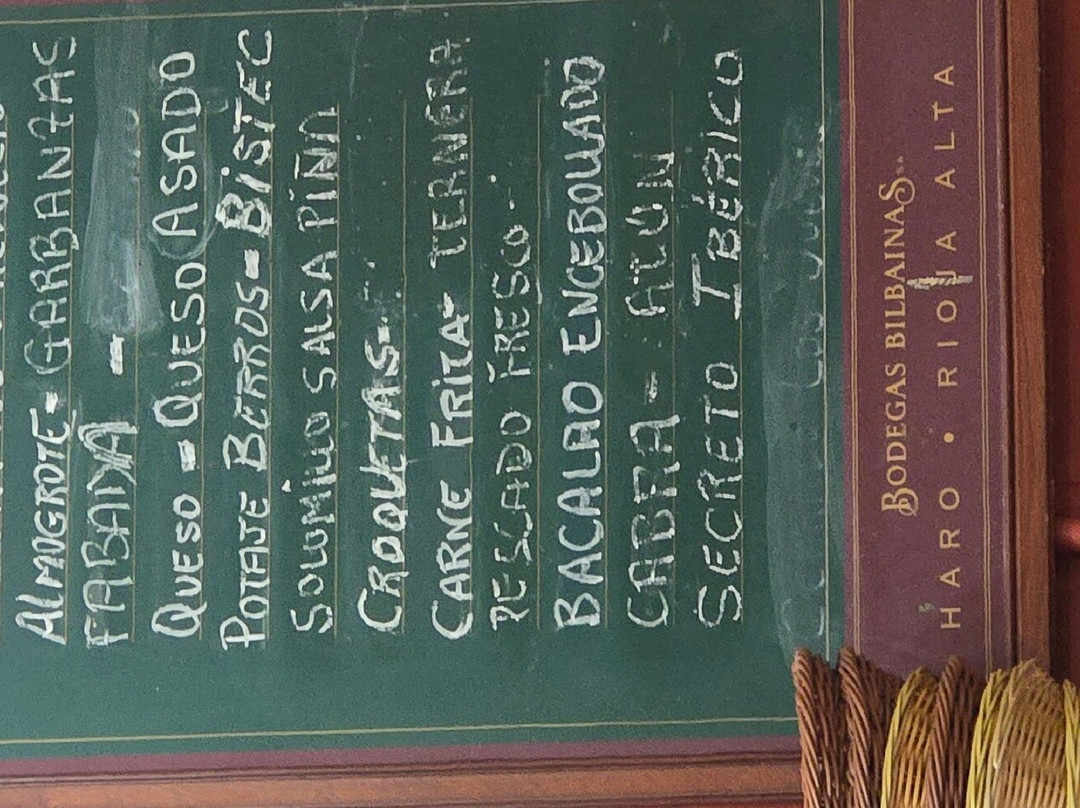 ALMOGROTE - GARBANZAS
FABADA -
QUESO - QUESO ASADO
POTAJE BERROS - BISTEC
SOLOMILLO SALSA PIÑA
CROQUETAS -
CARNE FRITA - TERNERA
PESCADO FRESCO -
BACALAO ENCEBOLLADO
CABRA - ATÚN
SECRETO IBÉRICO
BODEGAS BILBAINAS S.A.
HARO • RIOJA ALTA